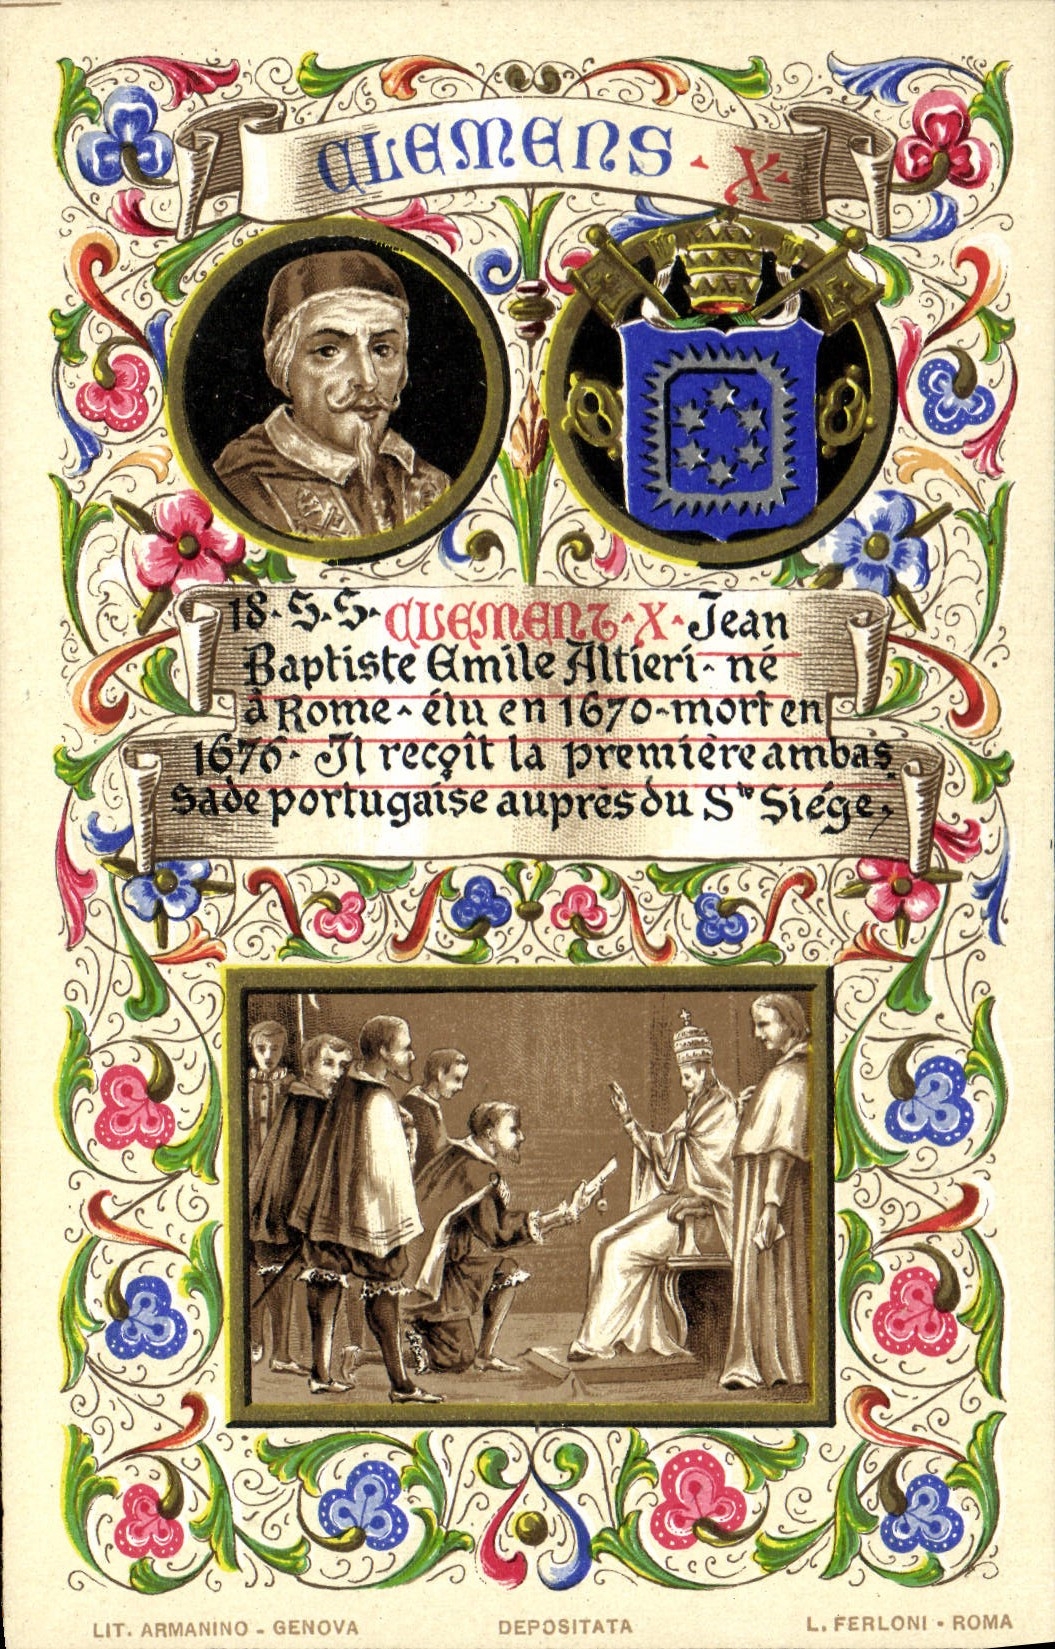 CLEMENS · X·
18· S· S· CLEMENT · X · Jean
Baptiste Emile Altieri · né
à Rome · élu en 1670 - mort en
1676 · Il reçoît la première ambas
sade portugaise auprès du Ste Siége,
LIT. ARMANINO - GENOVA DEPOSITATA L. FERLONI - ROMA